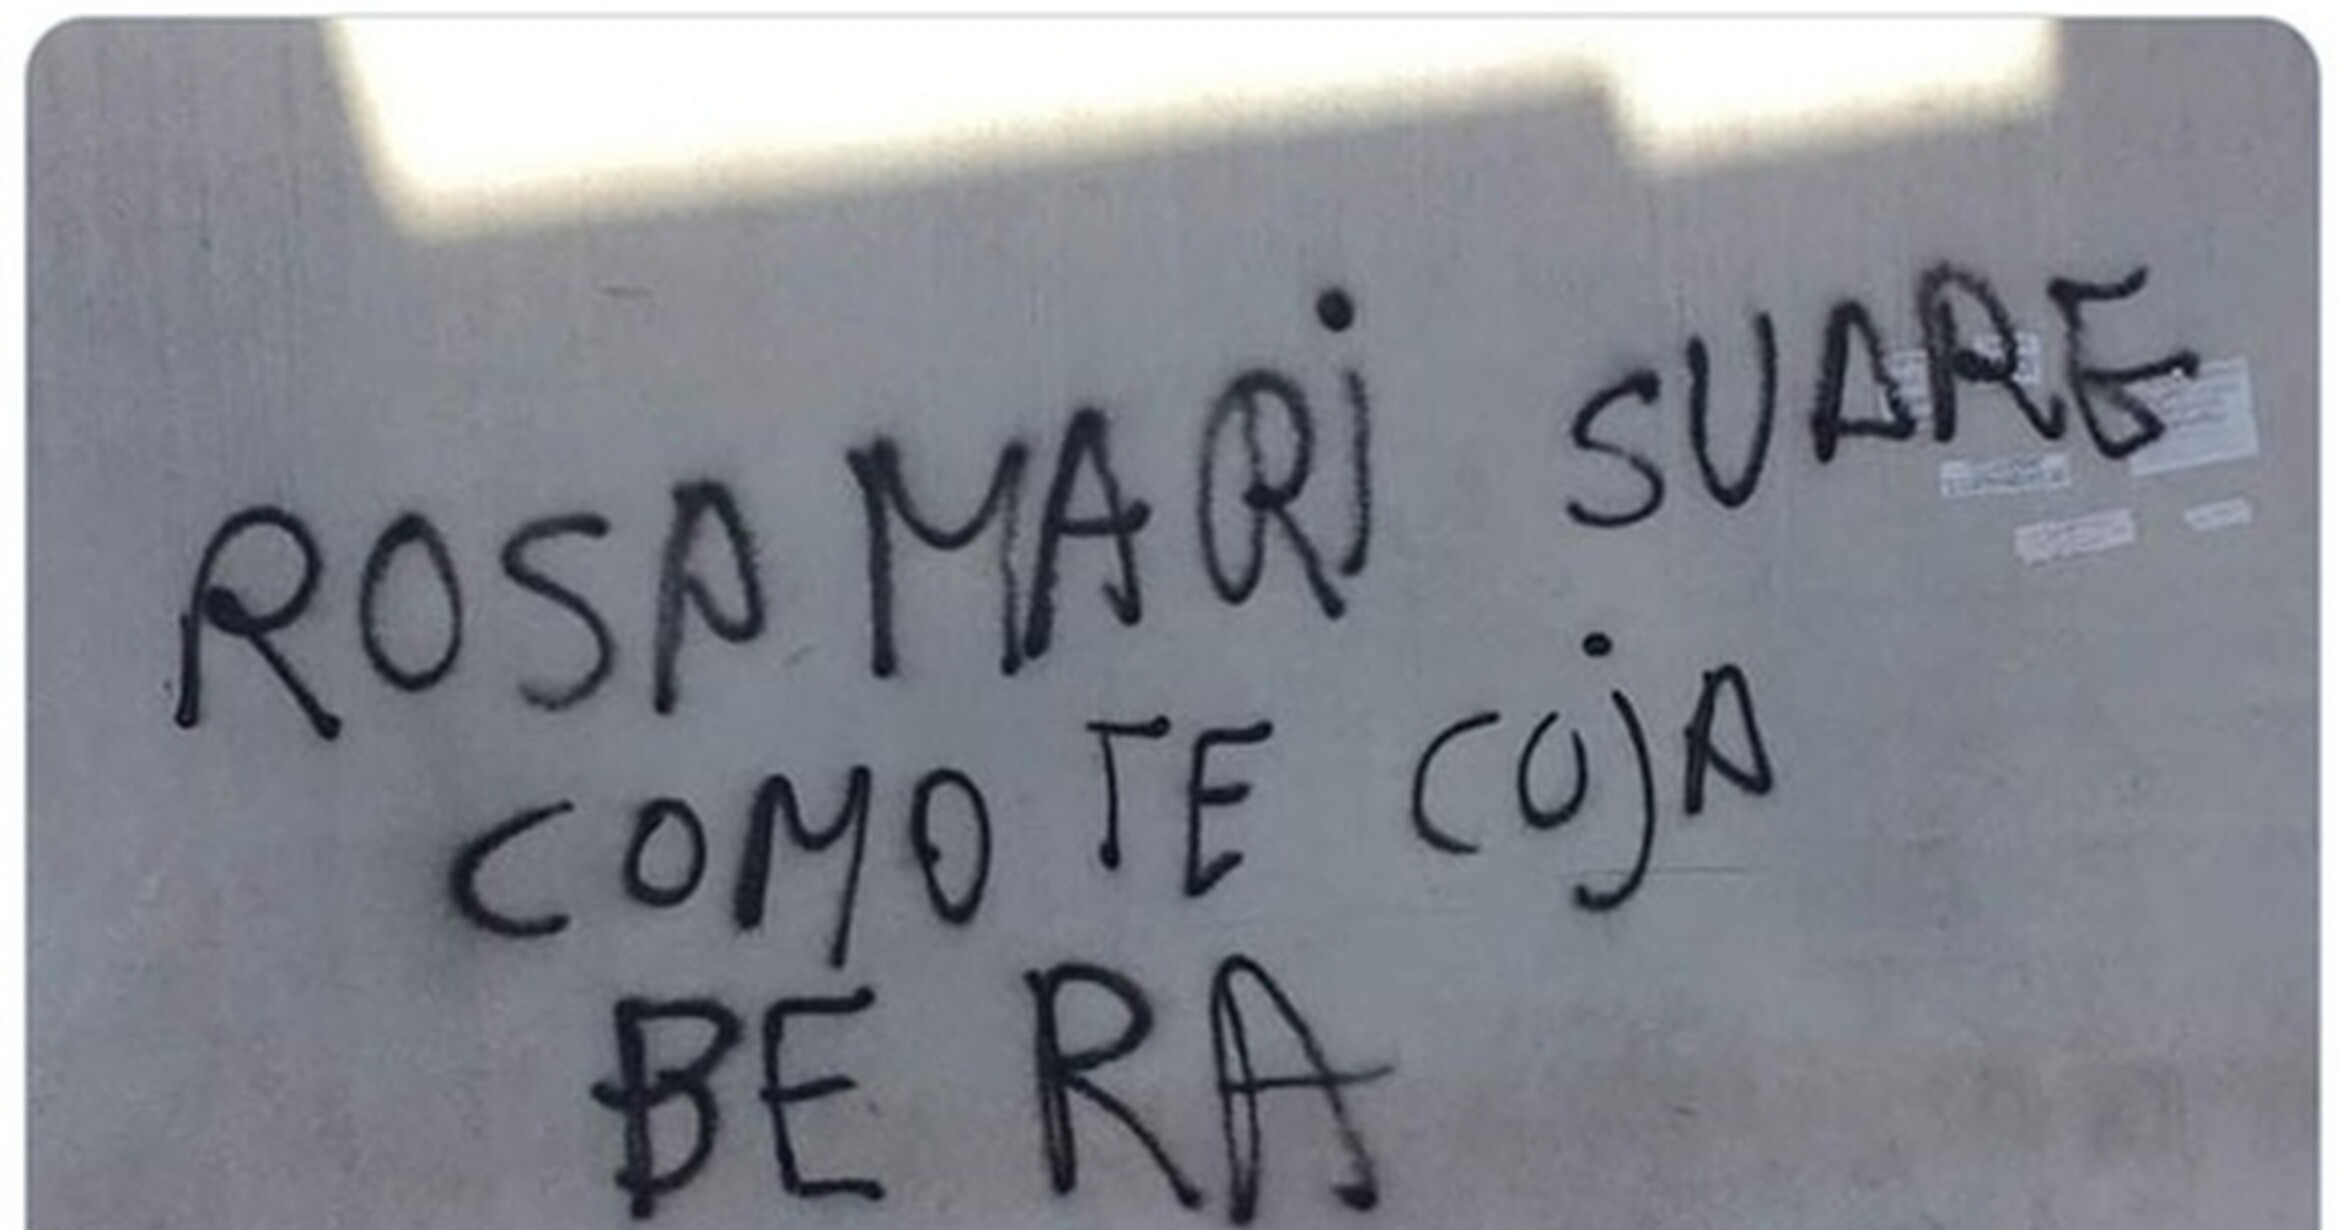 ROSA MARi SUARE
COMO TE COjA
BE RA